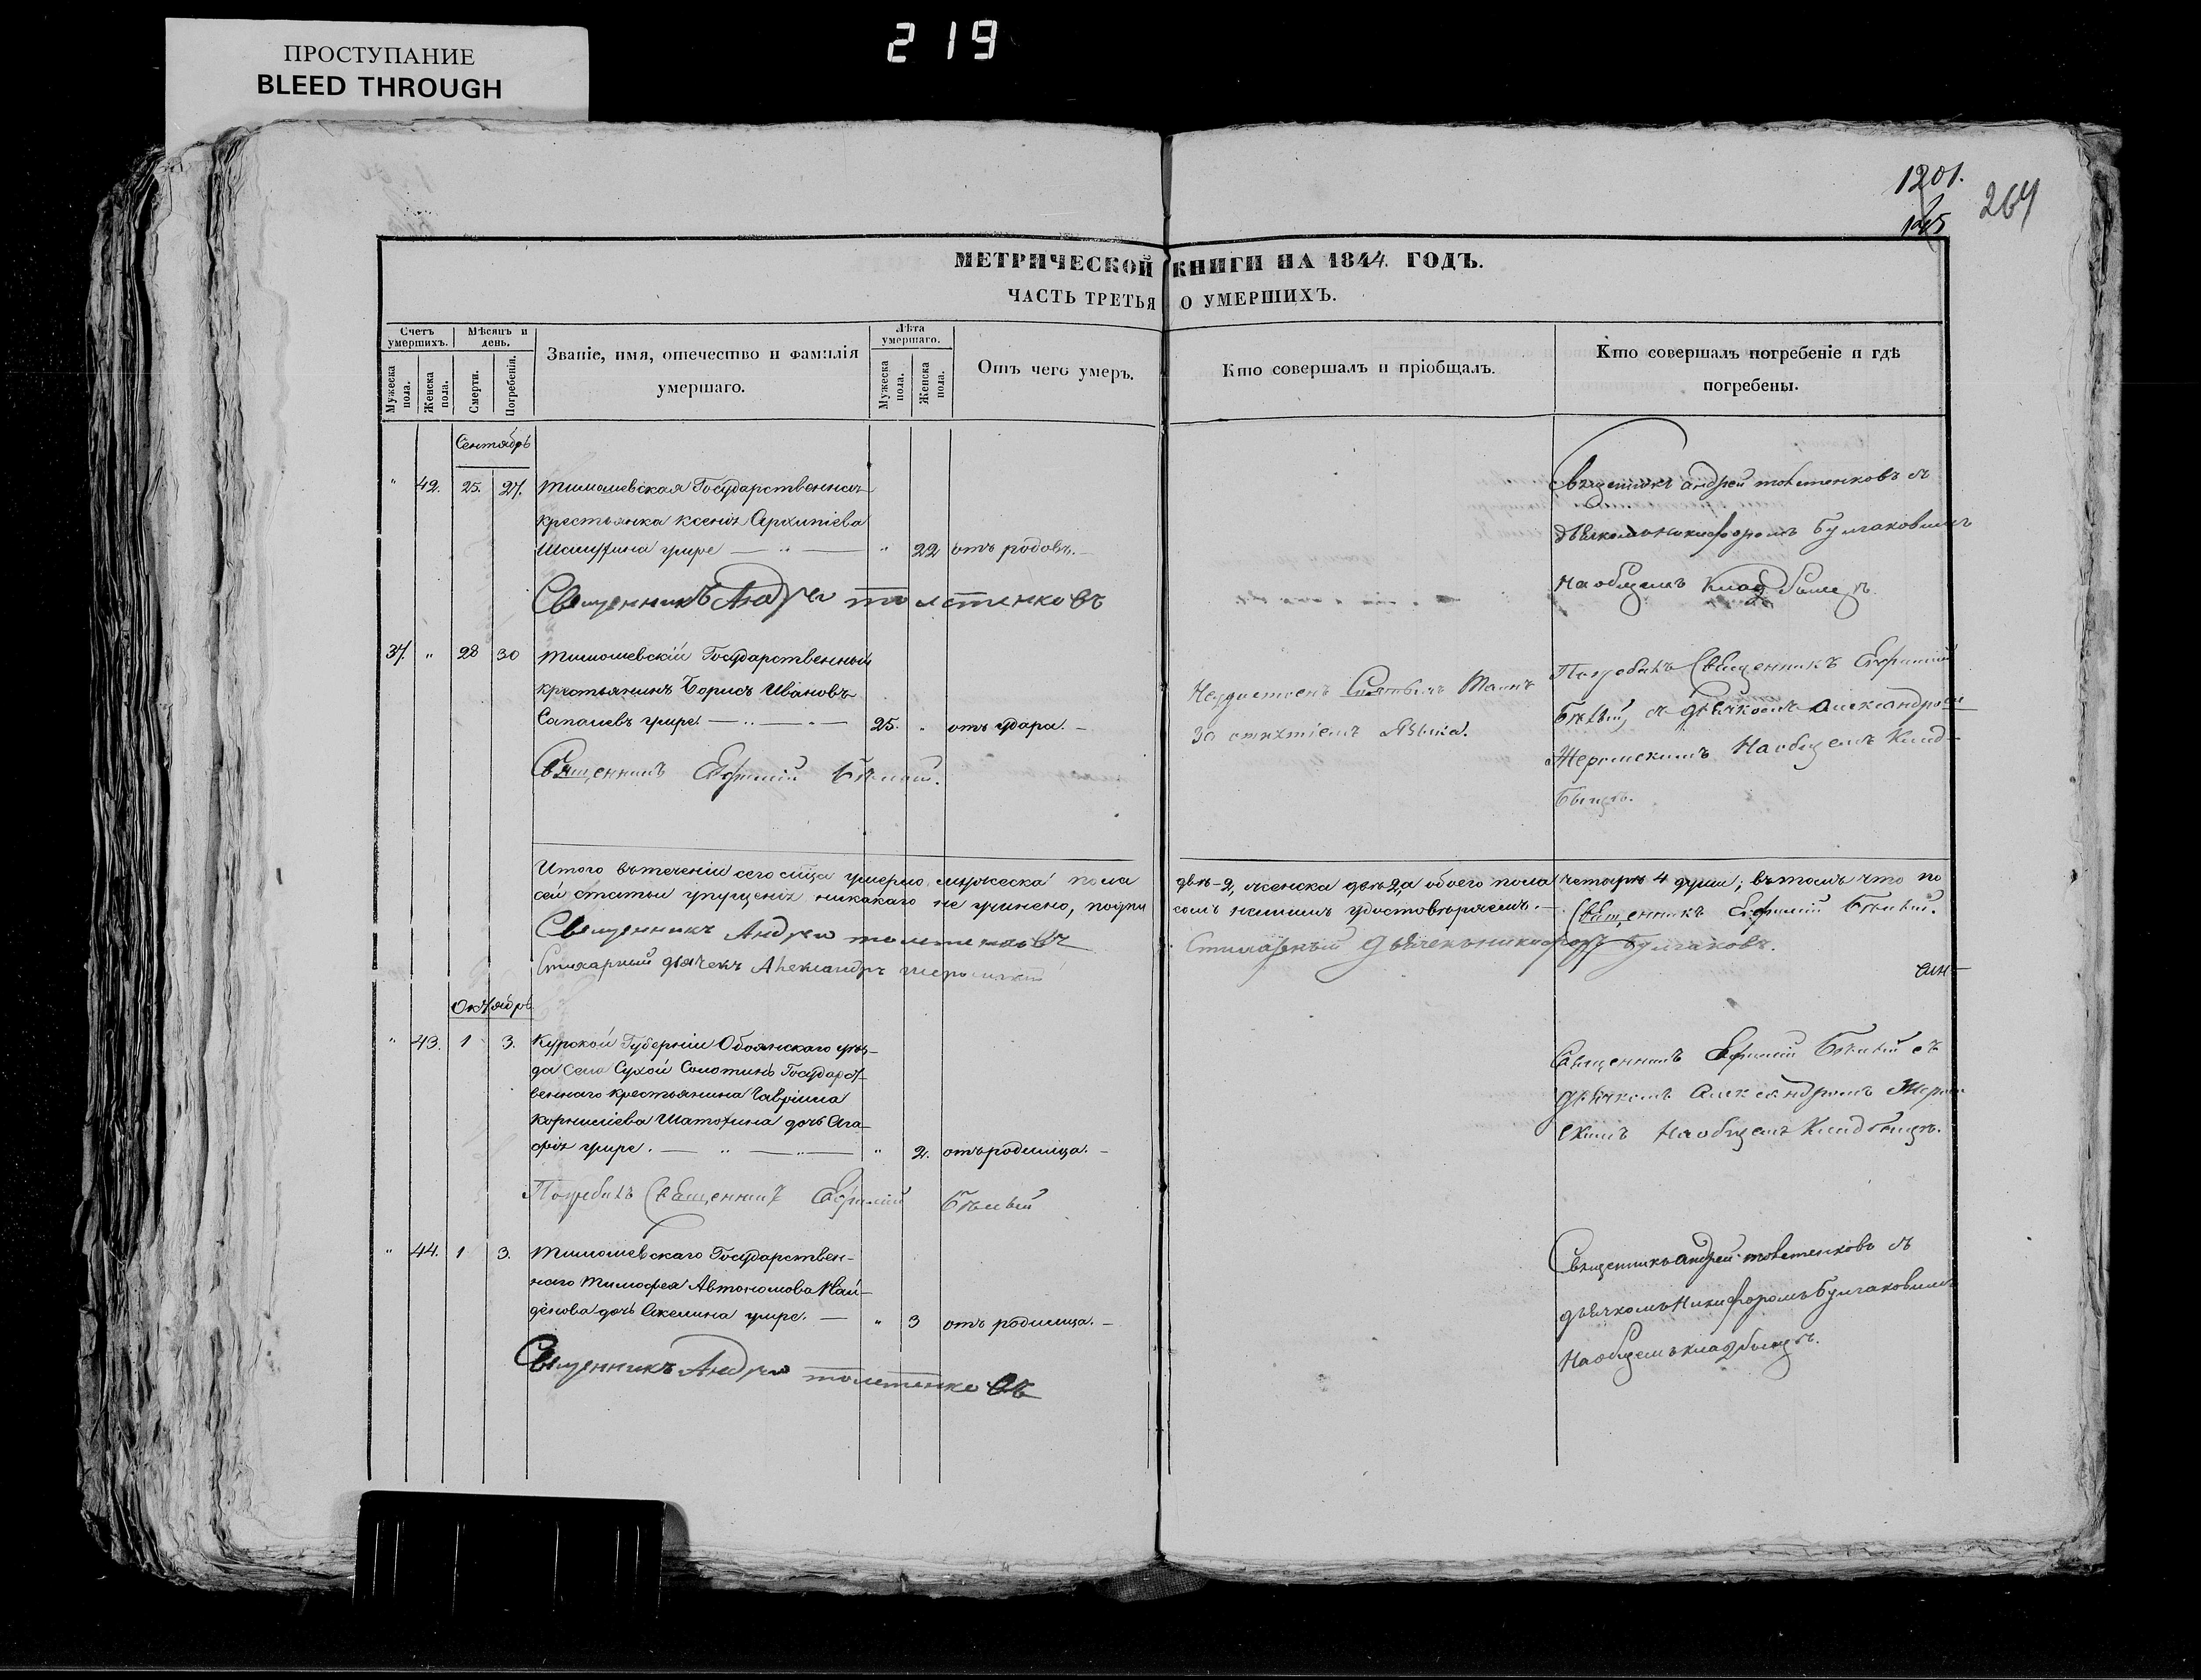 ПРОСТУПАНИЕ
BLEED THROUGH
219
1201.
264
МЕТРИЧЕСКОЙ КНИГИ НА 1844. ГОДЪ.
ЧАСТЬ ТРЕТЬЯ О УМЕРШИХЪ.
Счетъ умершихъ.
Мѣсяцъ и день.
Званіе, имя, отечество и фамилія умершаго.
Лѣта умершаго.
Отъ чего умеръ.
Кто совершалъ и пріобщалъ.
Кто совершалъ погребеніе и гдѣ погребены.
Мужеска пола.
Женска пола.
Смерти.
Погребенія.
Мужеска пола.
Женска пола.
Сентябрь
" 42. 25. 27. Тимошевская Государственная
крестьянка Ксенія Архипіева
умре — " — " 22 отъ родовъ. —
Священникъ Андрей Толстенковъ
Священникъ Андрей Толстенковъ съ
дьячкомъ Никифоромъ Булгаковымъ
на общемъ кладбищѣ.
37. " 28 30 Тимошевскій Государственный
крестьянинъ Борисъ Ивановъ
Сапашевъ умре. — " — 25. " отъ удара. —
Священникъ Ефимій Бѣлый.
Неудостоенъ Святыхъ Таинъ
за отнятіемъ языка.
Погребалъ Священникъ Ефимій
Бѣлый, съ дьячкомъ Александромъ
на общемъ клад-
бищѣ.
Итого въ теченіи сего мѣсяца умерло мужеска пола двѣ-2, женска двѣ 2, а обоего пола четыре 4 души; въ томъ что по
сей статьи упущенія никакаго не учинено, подписомъ нашимъ удостовѣряемъ. — Священникъ Ефимій Бѣлый.
Священникъ Андрей Толстенковъ
Стихарный дьячекъ Никифоръ Булгаковъ.
Стихарный дьячекъ Александръ
Октябрь
" 43. 1 3. Курской Губерніи Обоянскаго уѣз-
да села Сухой Солотины Государст-
веннаго крестьянина Гавріила
Корнилиева Шатохина дочь Ага-
фія умре. — " — " — " 2. отъ родимца. —
Погребалъ Священникъ Ефимій Бѣлый
Священникъ Ефимій Бѣлый съ
дьячкомъ Александромъ
на общемъ кладбищѣ.
" 44. 1 3. Тимошевскаго Государствен-
наго Тимофея Автономова Най-
денова дочь Акелина умре. — " 3 отъ родимца. —
Священникъ Андрей Толстенковъ
Священникъ Андрей Толстенковъ съ
дьячкомъ Никифоромъ Булгаковымъ
на общемъ кладбищѣ.